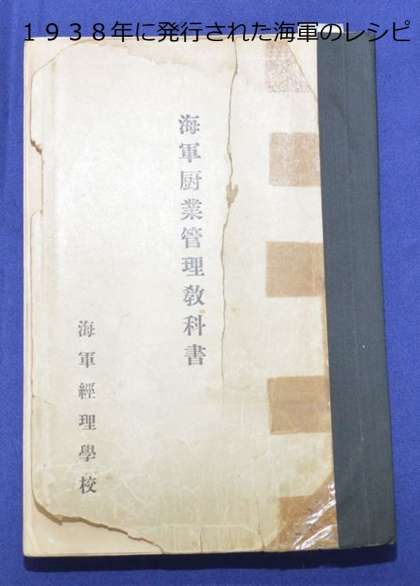 １９３８年に発行された海軍のレシピ
海軍厨業管理教科書
海軍經理學校